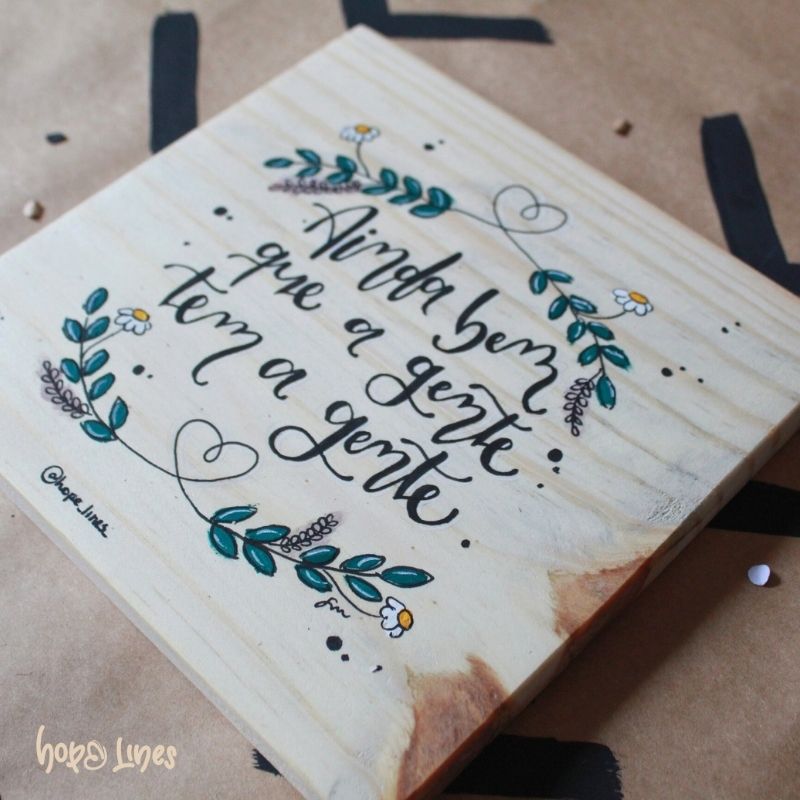 Ainda bem
que a gente
tem a gente
@hope_lines
hope lines